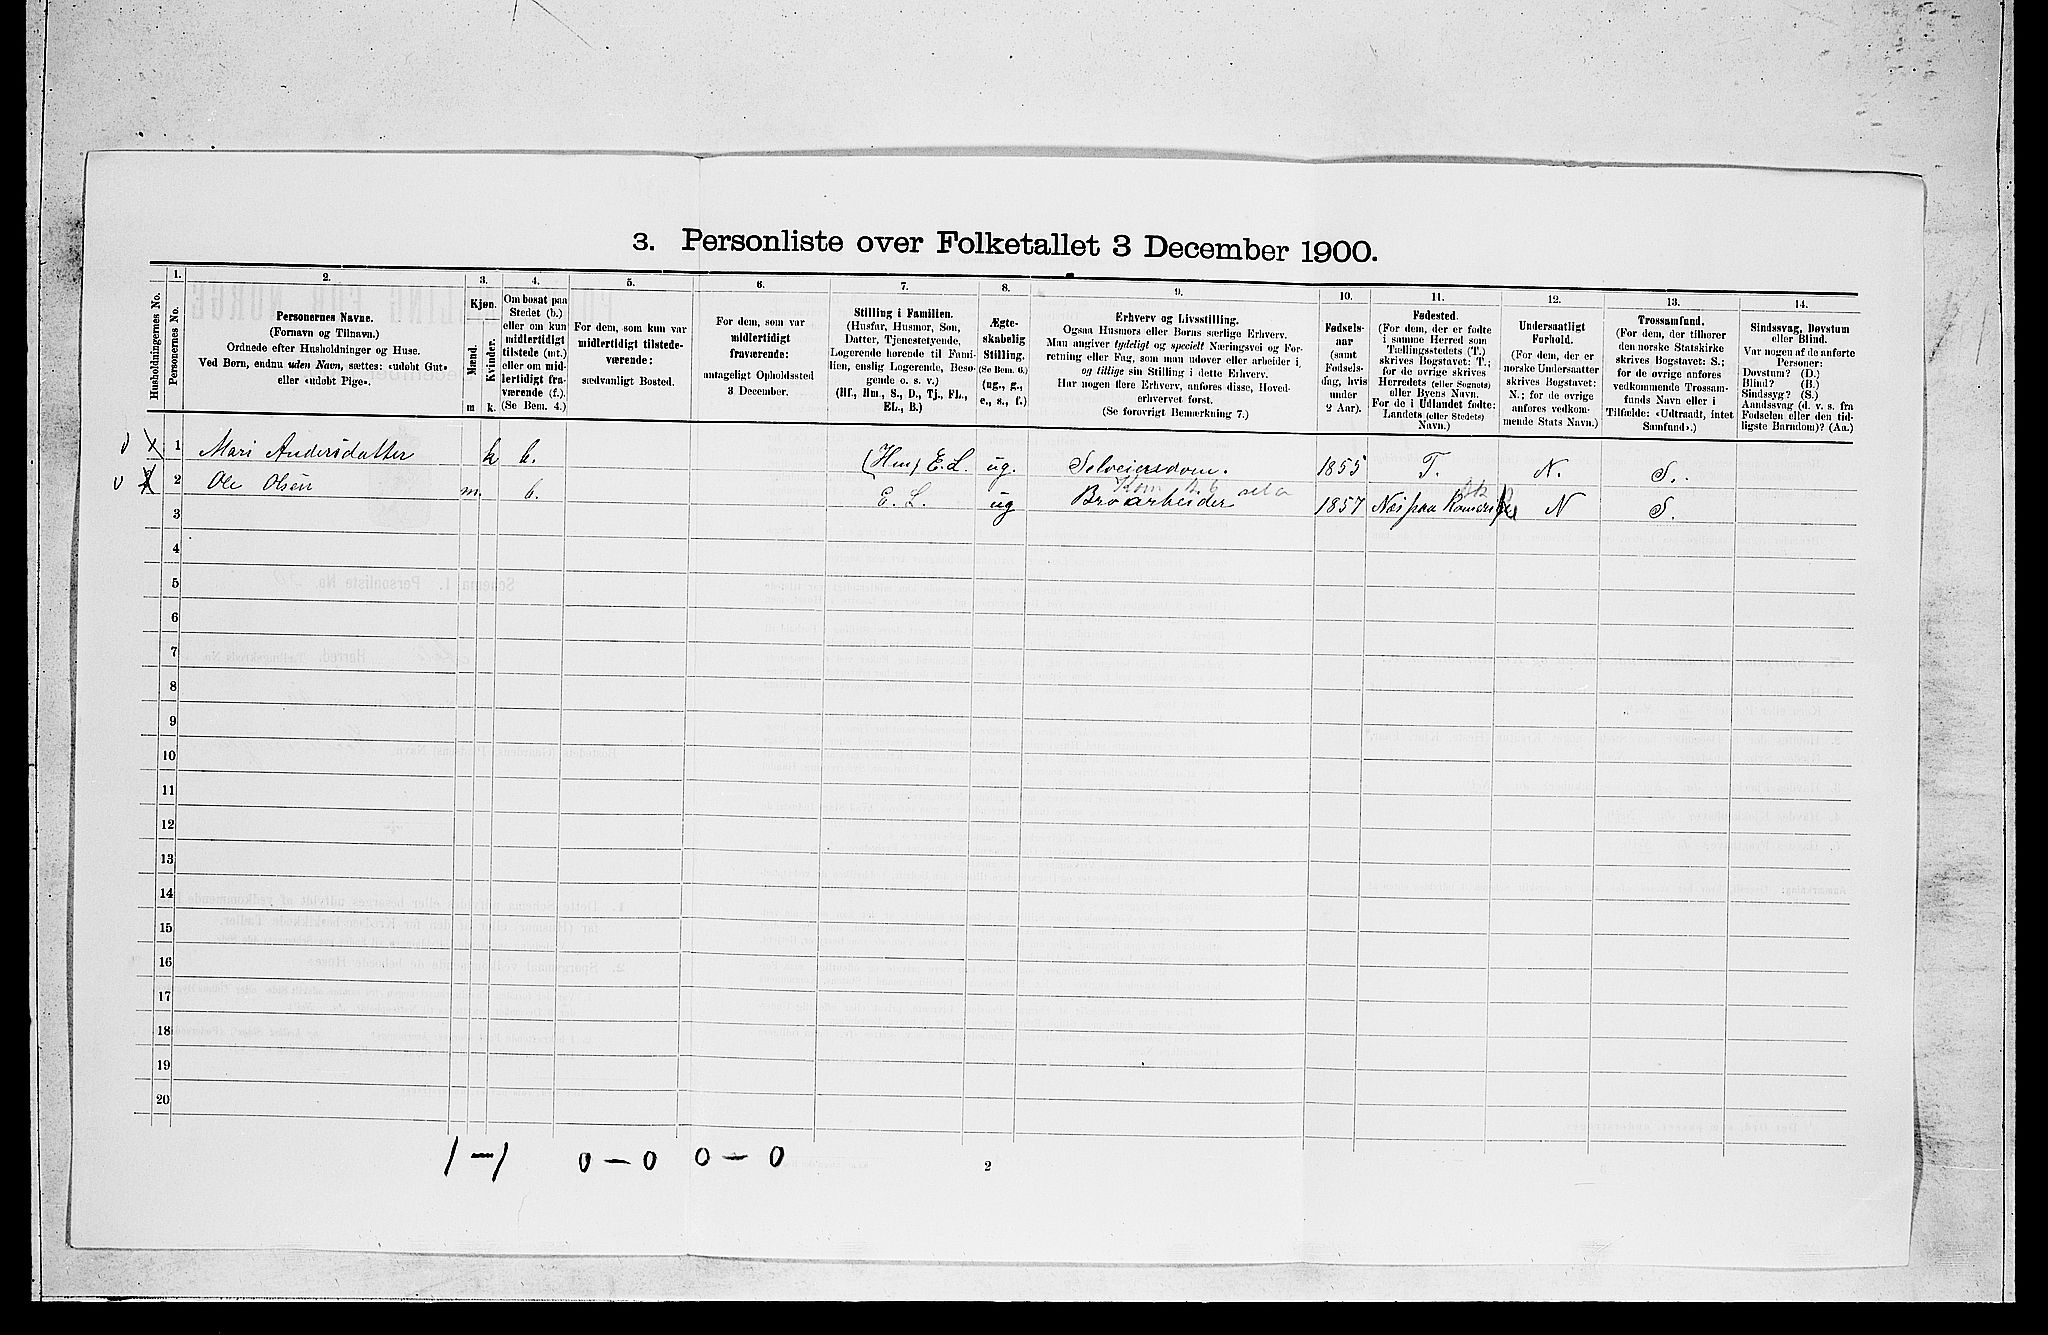 3. Personliste over Folketallet 3 December 1900.
Husholdningernes No.
1.
Personernes No.
2.
Personernes Navne.
(Fornavn og Tilnavn.)
Ordnede efter Husholdninger og Huse.
Ved Børn, endnu uden Navn, sættes: «udøbt Gut»
eller «udøbt Pige».
3.
Kjøn.
Mænd.
Kvinder.
m
k.
4.
Om bosat paa
Stedet (b.)
eller om kun
midlertidigt
tilstede (mt.)
eller om mid-
lertidigt fra-
værende (f.).
(Se Bem. 4.)
5.
For dem, som kun var
midlertidigt tilstede-
værende:
sædvanligt Bosted.
6.
For dem, som var
midlertidigt
fraværende:
antageligt Opholdssted
3 December.
7.
Stilling i Familien.
(Husfar, Husmor, Søn,
Datter, Tjenestetyende,
Logerende hørende til Fami-
lien, enslig Logerende, Besø-
gende o. s. v.)
(Hf., Hm., S., D., Tj., FL.,
EL., B.)
8.
Ægte-
skabelig
Stilling.
(Se Bem. 6.)
(ug., g.,
e., s., f.)
9.
Erhverv og Livsstilling.
Ogsaa Husmors eller Børns særlige Erhverv.
Man angiver tydeligt og specielt Næringsvei og For-
retning eller Fag, som man udøver eller arbeider i,
og tillige sin Stilling i dette Erhverv.
Har nogen flere Erhverv, anføres disse, Hoved-
erhvervet først.
(Se forøvrigt Bemærkning 7.)
10.
Fødsels-
aar
(samt
Fødsels-
dag, hvis
under
2 Aar).
11.
Fødested.
(For dem, der er fødte
i samme Herred som
Tællingsstedets (T.)
skrives Bogstavet: T.;
for de øvrige skrives
Herredets (eller Sognets)
eller Byens Navn.
For de i Udlandet fødte:
Landets (eller Stedets)
Navn.)
12.
Undersaatligt
Forhold.
(For dem, der er
norske Undersaatter
skrives Bogstavet:
N.; for de øvrige
anføres vedkom-
mende Stats Navn.)
13.
Trossamfund.
(For dem, der tilhører
den norske Statskirke
skrives Bogstavet: S.;
for de øvrige anføres
vedkommende Trossam-
funds Navn eller i
Tilfælde: «Udtraadt, intet
Samfund».)
14.
Sindssvag, Døvstum
eller Blind.
Var nogen af de anførte
Personer:
Døvstum? (D.)
Blind? (B.)
Sindssyg? (S.)
Aandssvag (d. v. s. fra
Fødselen eller den tid-
ligste Barndom)? (Aa.)
1 Mari Andersdatter k b. (Hm) E.L. ug. Selveiersdom. 1855 T. N. S.
2 Ole Olsen m. b. E. L. ug Broarbeider 1857 Næs paa Romerike N S.
3
4
5
6
7
8
9
10
11
12
13
14
15
16
17
18
19
20
1 – 1 0 – 0 0 – 0
2